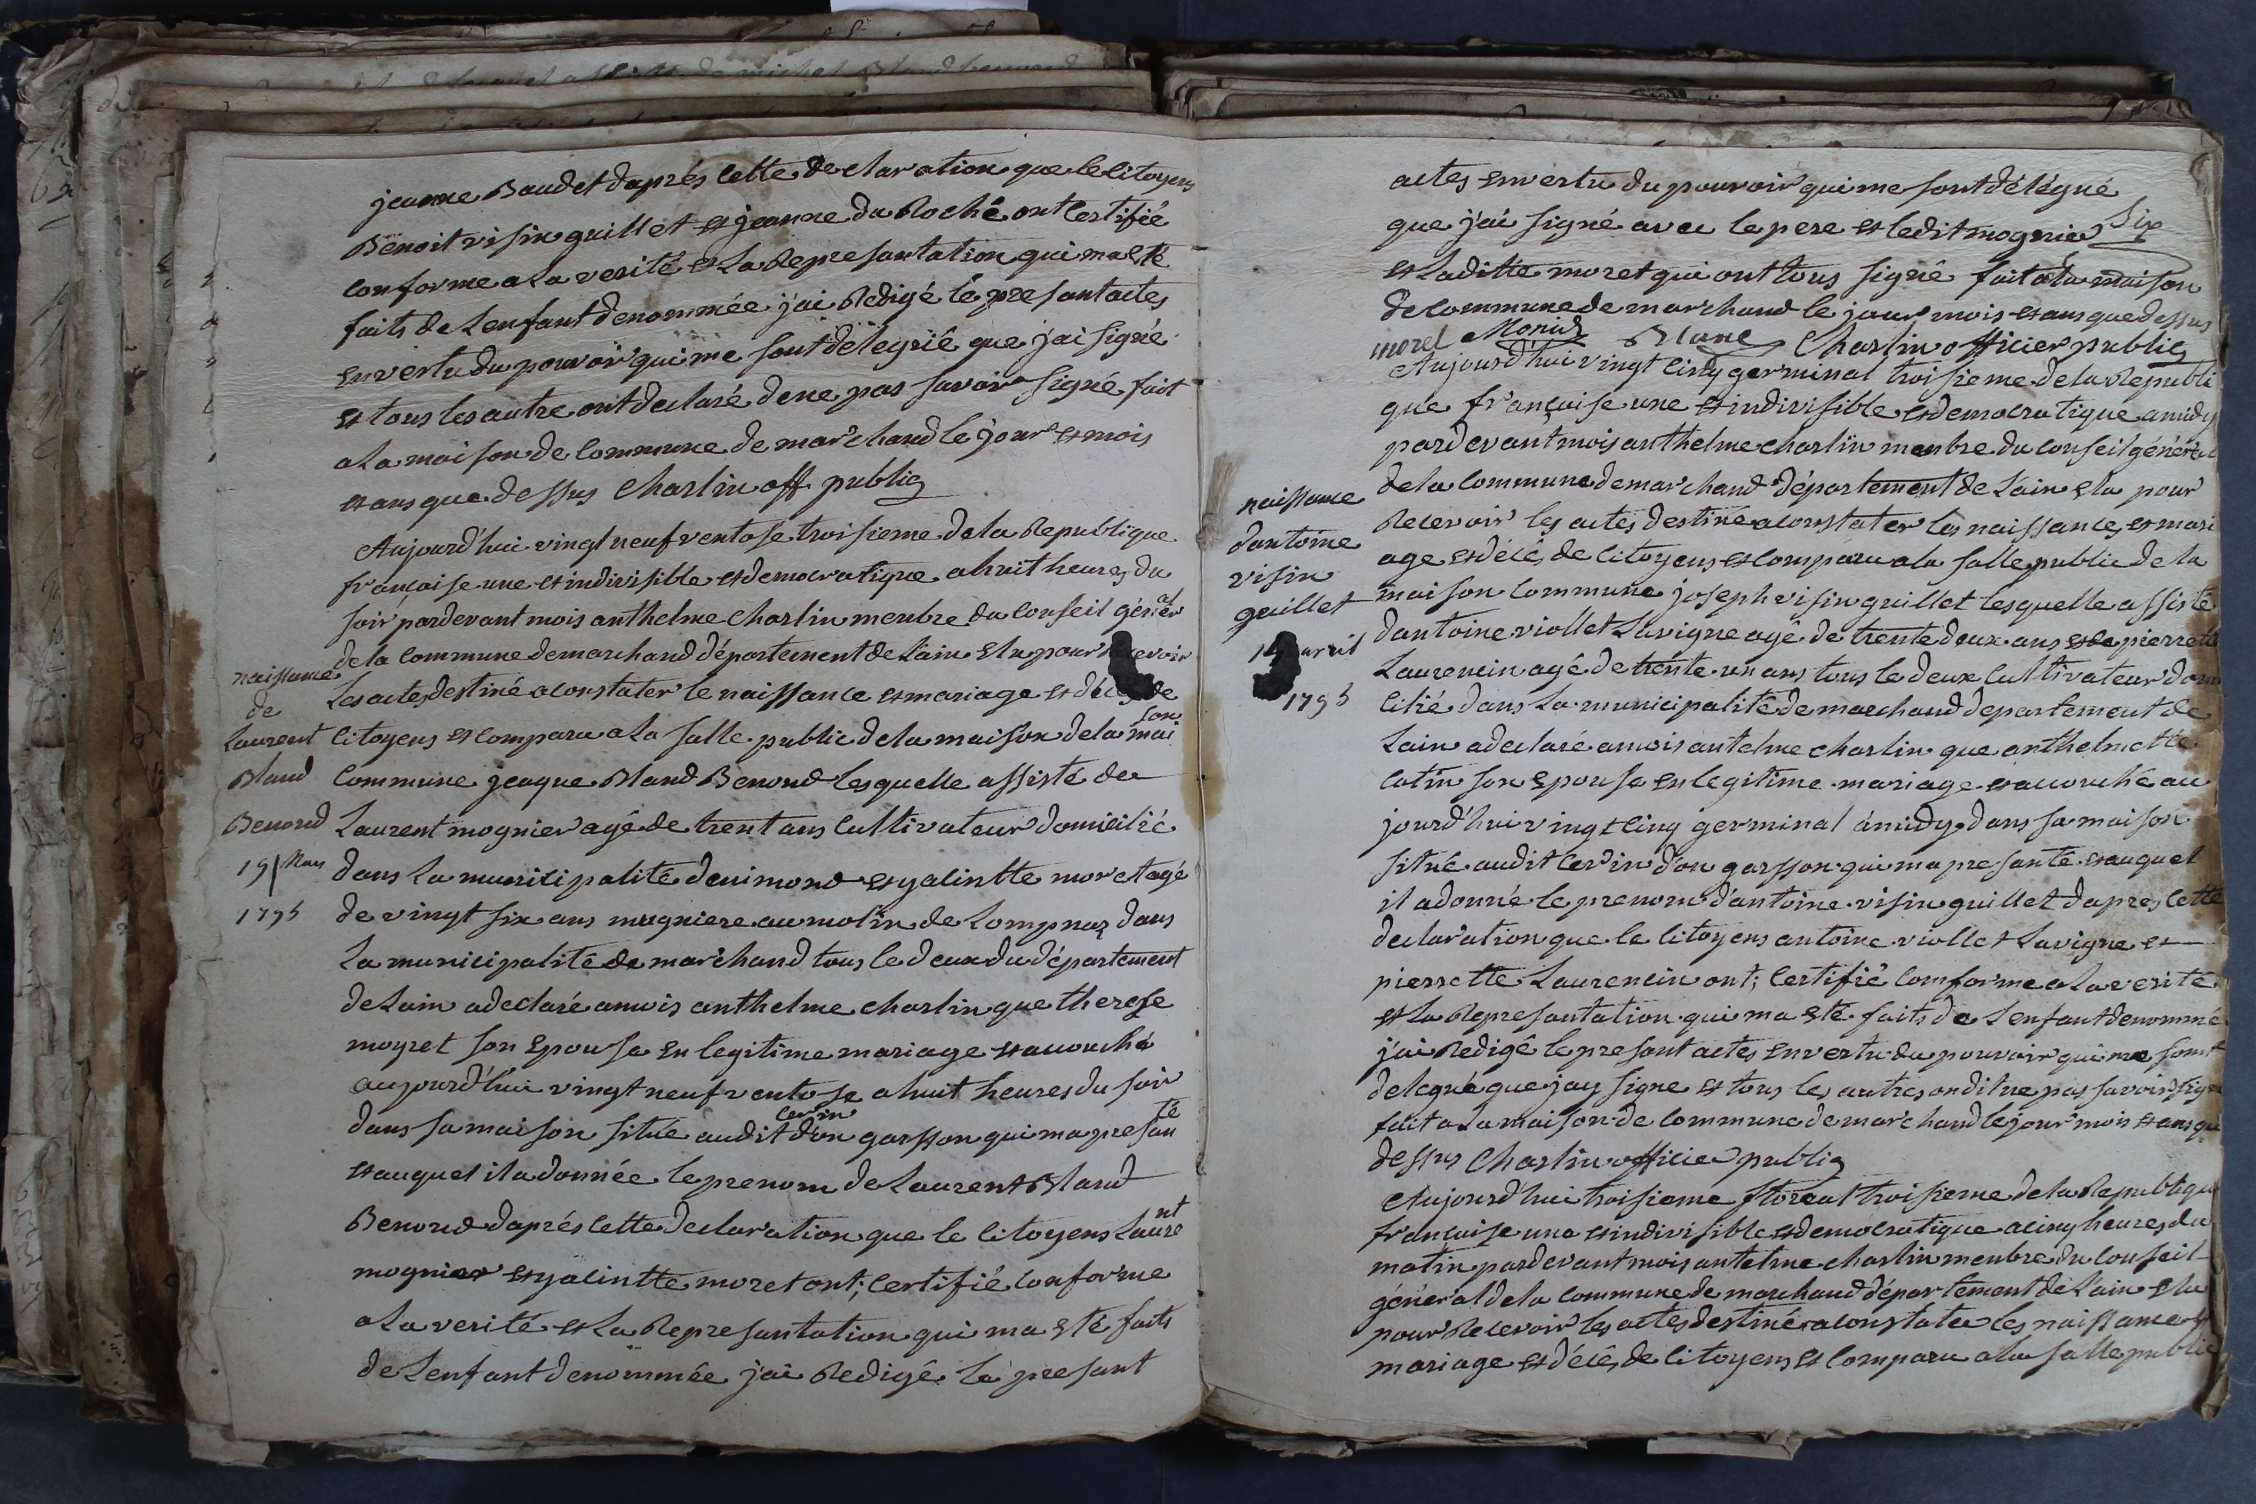 jeanne Baudet daprés cette declaration que le citoyens
Benoit visin guillet et jeanne du Roché ont certifié
conforme a la verité et la Represantation qui ma eté
faits de Lenfant denommée j'ai Redigé le presant actes
en vertu du pouvoir qui me sont délégué que j'ai signé
et tous les autre ont declaré de ne pas savoir signé fait
a la maison de commune de marchand le jour et mois
et ans que dessus Charlin off public
Aujourd'hui vingt neuf ventose troisieme de la Republique
française une et indivisible et democratique a huit heures du
soir pardevant mois anthelme Charlin menbre du conseil général
naissance
de
Laurent
Bland
Benond
19 Mars
1795
de la commune de marchand département de Lain elu pour recevoir
Les actes destiné a constater le naissance et mariage et décé de
citoyens et comparu a La salle public de la maison de la mai son
commune jeaque Bland Benond lesquelle assisté de
Laurent mognier agé de trent ans cultivateur domicilié
dans La municipalité denimond et yalintte moret agé
de vingt six ans mugniere au molin de Lompnaz dans
La municipalité de marchand tous le deux du département
de Lain a declaré amois anthelme charlin que therese
moyret son Epouse en legitime mariage et acouché
aujourd'hui vingt neuf ventose a huit heures du soir
dans sa maison situé audit cerin d'on garsson qui ma presanté
et auquel il a donnée le prenom de Laurent Bland
Benond daprés cette declaration que le citoyens Laurent
mognier et yalintte moret ont certifié conforme
a La verité et La Represantation qui ma eté faits
de Lenfant denommée jai Redigé le presant
actes en vertu du pouvoir qui me sont délégué
que j'ai signé avec le pere et ledit mognier
Six
et laditte moret qui ont tous signé fait a la maison
de commune de marchand le jour mois et ans que dessus
morel Monié Blanc Charlin officier public
Aujourd'hui vingt cinq germinal troisieme de la Republi
que française une et indivisible et democratique a midy
pardevant mois anthelme charlin menbre du conseil général
naissance
dantoine
visin
guillet
14 avril
1795
de la commune de marchand département de Lain elu pour
Recevoir les actes destiné a constater les naissances et mari
age et décés de citoyens et comparu a la salle public de la
maison commune joseph visin guillet lesquelle assisté
dantoine viollet Lavigne agé de trente deux ans et de pierrette
Laurencin agé de trente un ans tous le deux cultivateur domi
cilié dans La municipalité de marchand departement de
Lain a declaré amois antelme charlin que anthelmette
catin son epouse en legitime mariage et acouché au
jourd'hui vingt cinq germinal à midy dans sa maison
situé audit cerin d'on garsson qui ma presanté et auquel
il a donné le prenom d'antoine visin guillet dapres cette
declaration que le citoyens antoine viollet Lavigne et
pierrette Laurencin ont certifié comforme a La verité
et La Represantation qui ma eté faits de Lenfant denommé
j'ai Redigé le presant actes en vertu du pouvoir qui me sont
delegué que jay signe et tous les autres ondit ne pas savoir signe
fait a La maison de commune de marchand le jour mois et ans que
dessus Charlin officier public
Aujourd'hui troisieme floreal troisieme de la Republique
française une et indivisible et democratique a cinq heures du
matin pardevant mois antelme charlin menbre du conseil
général de la commune de marchand département de Lain elu
pour Recevoir les actes destiné a constater les naissances
mariage et décés de citoyens et comparu a la salle public